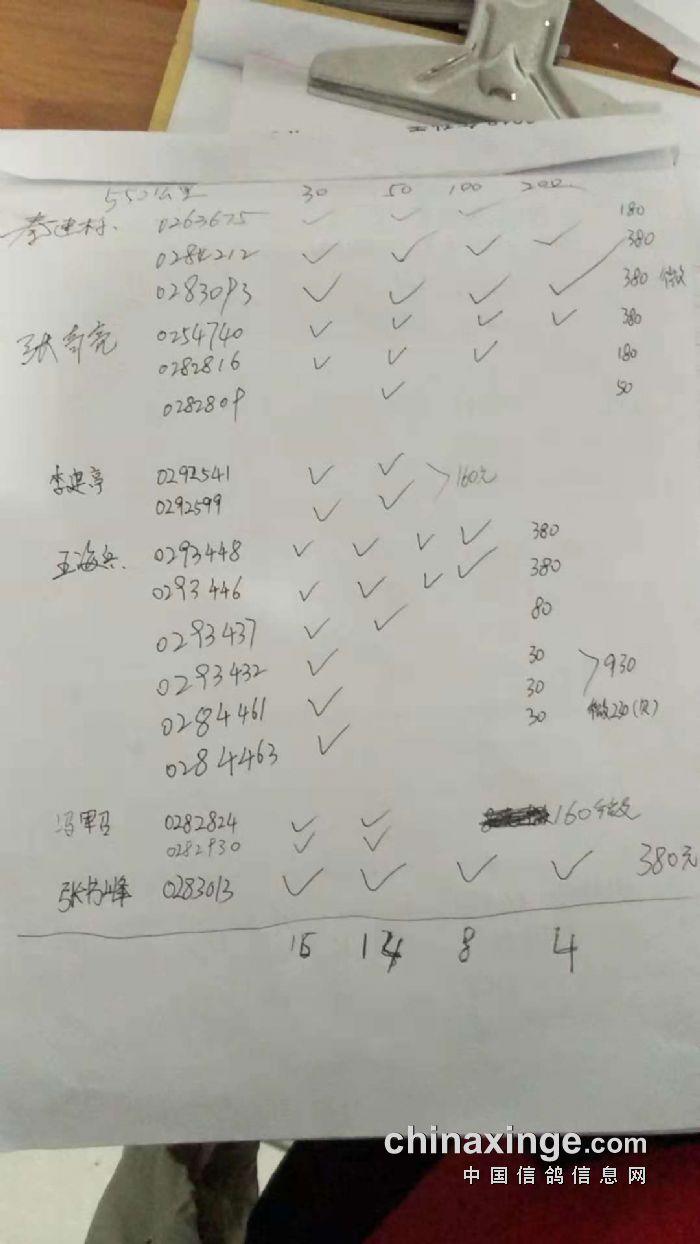 550公里 30 50 100 200
秦建村 0263675 ✓ ✓ ✓ 180
0284212 ✓ ✓ ✓ ✓ 380
0283093 ✓ ✓ ✓ ✓ 380 微
张奇亮 0254740 ✓ ✓ ✓ ✓ 380
0282816 ✓ ✓ ✓ 180
0282809 ✓ 50
李建亭 0292541 ✓ ✓ 160元
0292599 ✓ ✓
王海兵 0293448 ✓ ✓ ✓ ✓ 380
0293446 ✓ ✓ ✓ ✓ 380
0293437 ✓ ✓ 80
0293432 ✓ 30 930
0284461 ✓ 30
0284463 ✓ 30
0282824 ✓ ✓ 160微
0282930 ✓ ✓
张书峰 0283013 ✓ ✓ ✓ ✓ 380元
8 4
chinaxinge.com
中国信鸽信息网